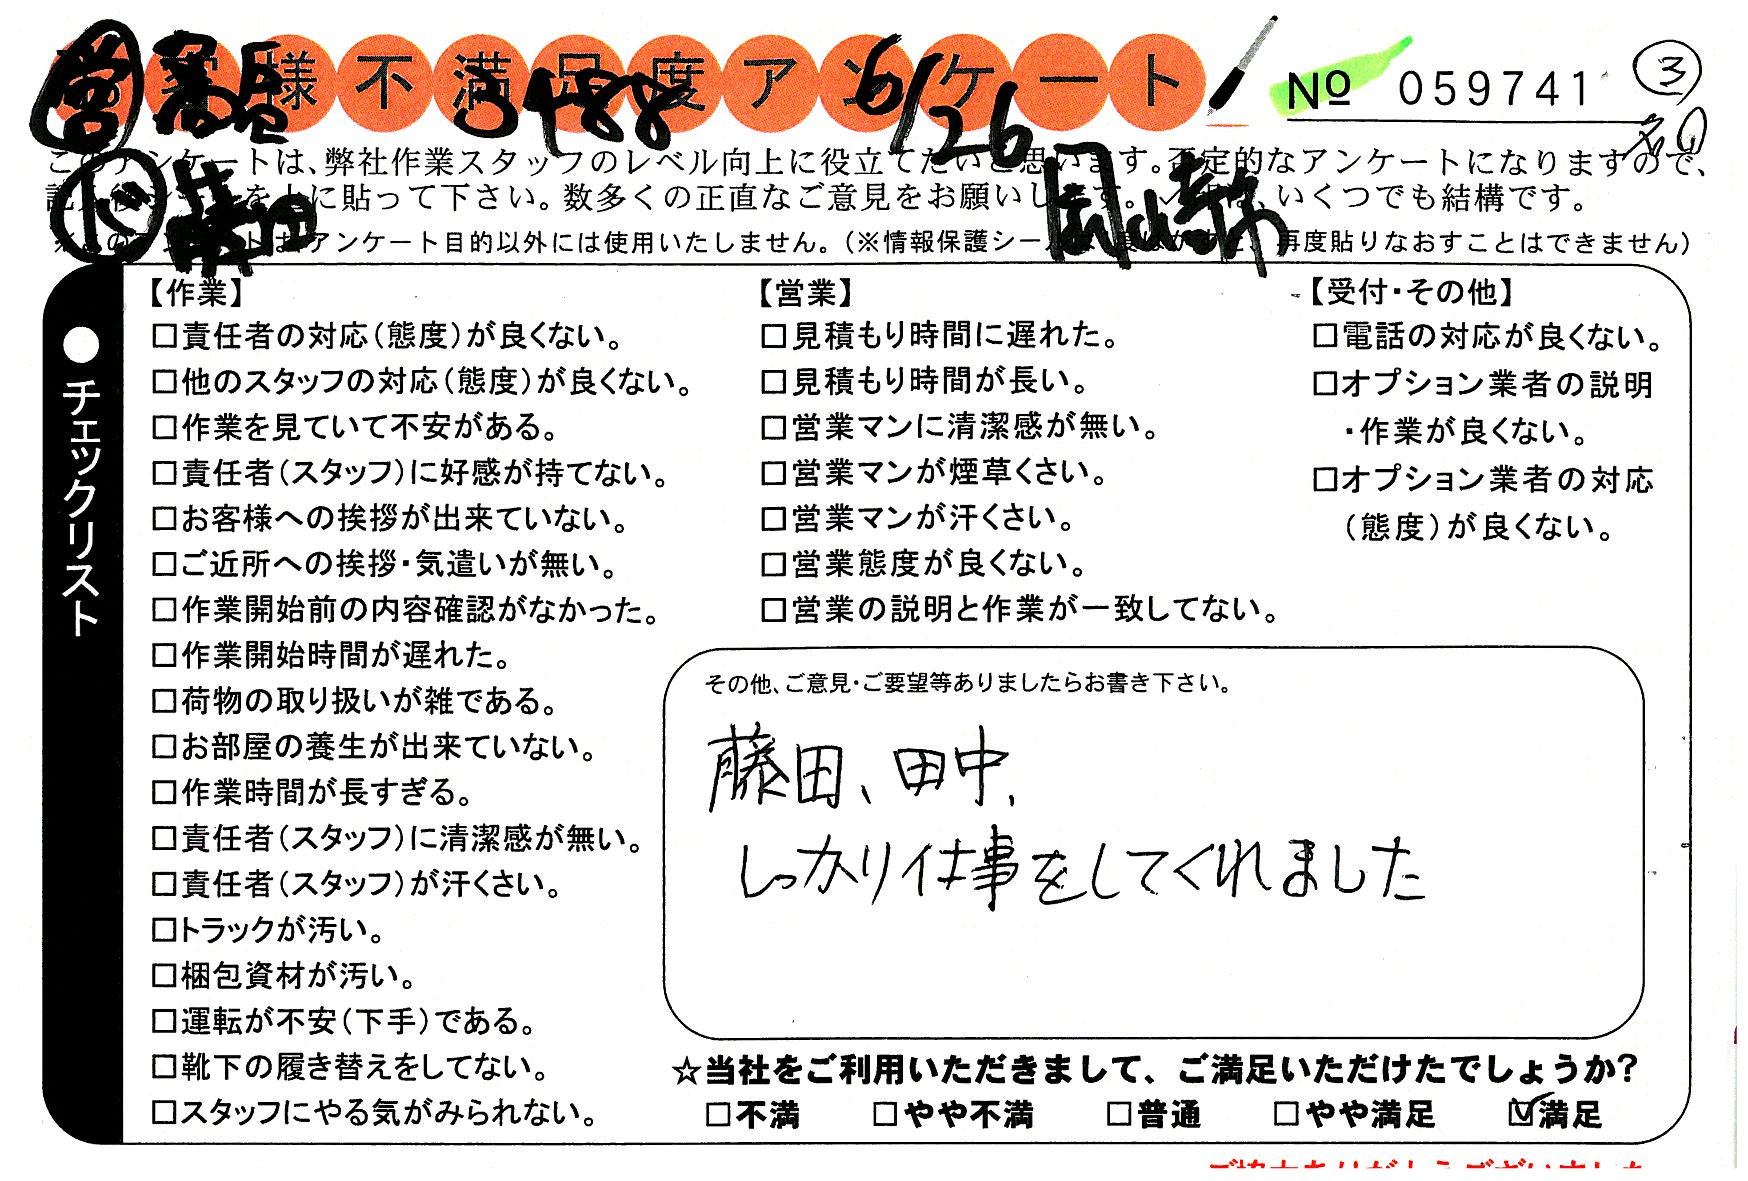 お客様不満足度アンケート
No 059741
③
3488 6/26
このアンケートは、弊社作業スタッフのレベル向上に役立てたいと思います。否定的なアンケートになりますので、
を上に貼って下さい。数多くの正直なご意見をお願いします。いくつでも結構です。
アンケート目的以外には使用いたしません。(※情報保護シールは 再度貼りなおすことはできません)
岡崎
●チェックリスト
【作業】
□責任者の対応(態度)が良くない。
□他のスタッフの対応(態度)が良くない。
□作業を見ていて不安がある。
□責任者(スタッフ)に好感が持てない。
□お客様への挨拶が出来ていない。
□ご近所への挨拶・気遣いが無い。
□作業開始前の内容確認がなかった。
□作業開始時間が遅れた。
□荷物の取り扱いが雑である。
□お部屋の養生が出来ていない。
□作業時間が長すぎる。
□責任者(スタッフ)に清潔感が無い。
□責任者(スタッフ)が汗くさい。
□トラックが汚い。
□梱包資材が汚い。
□運転が不安(下手)である。
□靴下の履き替えをしてない。
□スタッフにやる気がみられない。
【営業】
□見積もり時間に遅れた。
□見積もり時間が長い。
□営業マンに清潔感が無い。
□営業マンが煙草くさい。
□営業マンが汗くさい。
□営業態度が良くない。
□営業の説明と作業が一致してない。
【受付・その他】
□電話の対応が良くない。
□オプション業者の説明
・作業が良くない。
□オプション業者の対応
(態度)が良くない。
その他、ご意見・ご要望等ありましたらお書き下さい。
藤田、田中、
しっかり仕事をしてくれました
☆当社をご利用いただきまして、ご満足いただけたでしょうか?
□不満 □やや不満 □普通 □やや満足 ☑満足
ご協力ありがとうございました